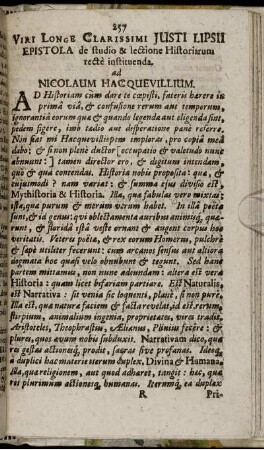 257
VIRI LONGE CLARISSIMI JUSTI LIPSII
EPISTOLA de studio & lectione Historiarum
rectè instituenda.
ad
NICOLAUM HACQUEVILLIUM.
AD Historiam cùm dare te cœpisti, fateris hærere in
primâ viâ, & confusione rerum aut temporum,
ignorantiâ eorum quæ & quando legenda aut eligenda sint,
pedem figere, imò tædio aut desperatione pænè referre.
Non fiat mi Hacquevilli: opem imploras, pro copiâ meâ
dabo; & si non planè ductor [occupatio & valetudo nunc
abnuunt:] tamen director ero, & digitum intendam,
quò & quà contendas. Historia nobis proposita: quæ, &
cujusmodi? nam variat; & summa ejus divisio est,
Mythistoria & Historia. Illa, quæ fabulas vero mixtas:
ista, quæ purum & merum verum habet. In illâ poëtæ
sunt, & id genus: qui oblectamenta auribus animisq́; quærunt,
& floridâ istâ veste ornant & augent corpus hoc
veritatis. Veteres poëtæ, & rex eorum Homerus, pulchrè
& sapè utiliter fecerunt: cùm arcanos sensus aut altiora
dogmata hoc quasi velo obnubent & tegunt. Sed hanc
partem mittamus, non nunc adundam: altera est vera
Historia: quam licet bifariam partiare. Est Naturalis,
est Narrativa: sit venia sic loquenti, plani, si non puræ.
Illa est, quæ natura faciem & facta revelat, id est rerum,
stirpium, animalium ingenia, proprietates, vires tradit.
Aristoteles, Theophrastus, Ælianus, Plinius fecere: &
plures, quos avum nobis subduxit. Narrativam dico, quæ
res gestas actionesq́; prodit, sacras sive profanas. Ideoq́;
à duplici hac materie iterum duplex, Divina & Humana.
Illa, quæ religionem, aut quod adharet, tangit: hæc, quæ
res plurimùm actionesq́; humanas. Iterumq́; ea duplex
R Pri-